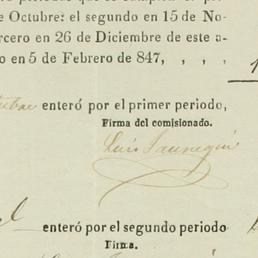 de Octubre: el segundo en 15 de No-
rcero en 26 de Diciembre de este a-
o en 5 de Febrero de 847, , , , 1
tubre enteró por el primer periodo,
Firma del comisionado.
Luis
enteró por el segundo periodo
Firma.